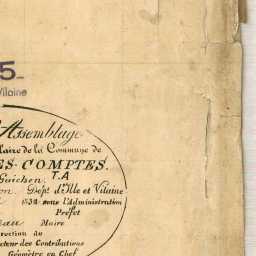 5
Vilaine
Assemblage
laire de la Commune de
ES-COMPTES.
T.A
Guichen
on Dépt. d'Ille et Vilaine
1834 sous l'Administration
Préfet
eau Maire
irection de
cteur des Contributions
Géomètre en Chef